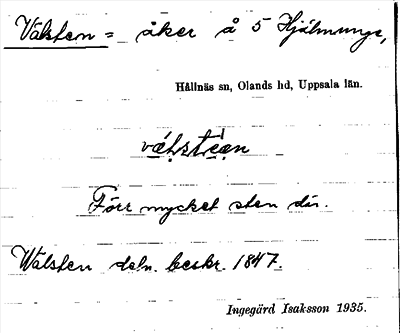 Valsten = åker å 5 Hjälmunge,
Hållnäs sn, Olands hd, Uppsala län.
Förr mycket sten där.
Walsten deln. beskr. 1847.
Ingegärd Isaksson 1935.